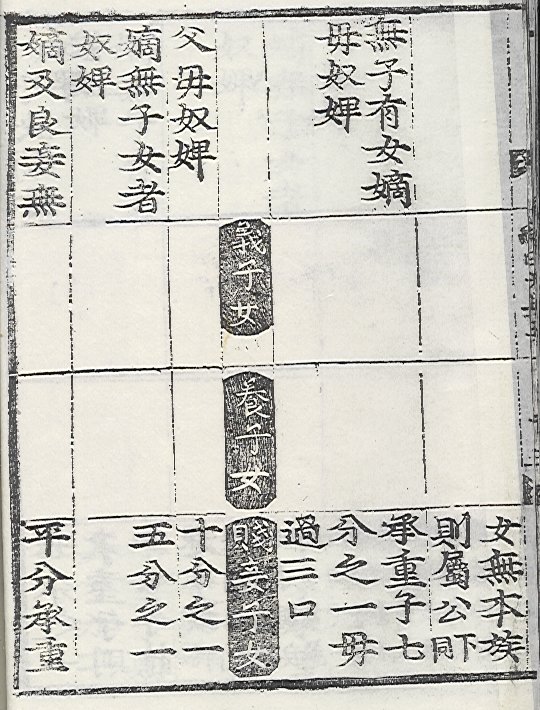 無子有女嫡
母奴婢
父母奴婢
嫡無子女者
奴婢
嫡及良妾無
義子女
養子女
女無本族
則屬公下同
承重子七
分之一毋
過三口
賤妾子女
十分之一
五分之一
平分承重